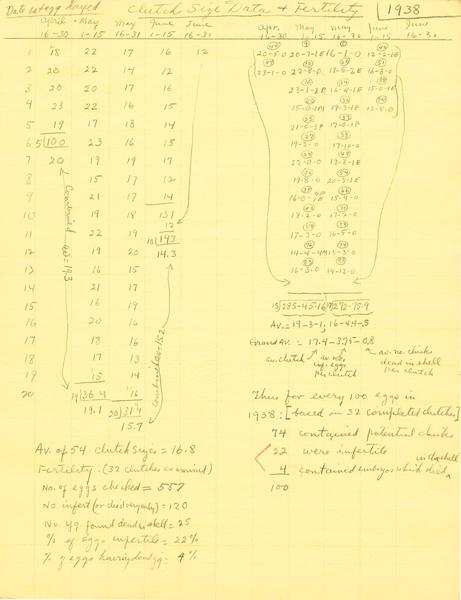 Date 1st egg layed Clutch Size Data + Fertility 1938
April May May June June
16-30 1-15 16-31 1-15 16-30
Apr. May May June June
16-30 1-15 16-30 1-15 16-30
1 18 22 17 16 12
2 20 22 14 12
3 20 20 17 16
4 23 22 16 15
5 19 17 18 14
6 5|100 23 16 15
7 20 19 19 17
8 15 17 12
9 21 17 14
10 19 18 131
11 22 19 12
10|143
12 19 20 14.3
13 16 15
14 21 17
15 16 19
16 20 16
17 18 16
18 17 13
19 15 14
20 19|364 16
19.1 20|314
15.7
Combined av = 19.3
Combined av = 15.2
20-5-0 20-7-1E 16-1-0 12-2-1E
23-1-0 22-8-0 13-5-2E 16-8-0
23-1-2P 16-4-1E 15-0-1E
15-0-1P 19-3-1E 12-5-0
21-0-3P 17-0-1P
19-3-0 17-10-0
22-0-0 19-3-1E
19-8-0 20-3-1E
15-4-0
18-2-0 17-2-0
17-3-0 16-5-0
14-4-4M 13-3-0
16-3-0 14-12-0
15|285-45-16 17|272-75-9
Av. = 19-3-1, 16-4.4-.5
Grand Av = 17.4-3.75-0.8
av. clutch
av. no. inf. eggs per clutch
av. no. chicks dead in shell per clutch
Thus for every 100 eggs in
1938: [based on 32 completed clutches]
74 contained potential chicks
22 were infertile
4 contained embryos which died in the shell
100
Av. of 54 clutch sizes = 16.8
Fertility. (32 clutches examined)
No. of eggs checked = 557
No infert (or died very early) = 120
No. yg found dead in shell = 25
% of eggs infertile = 22%
% of eggs having dead yg = 4%